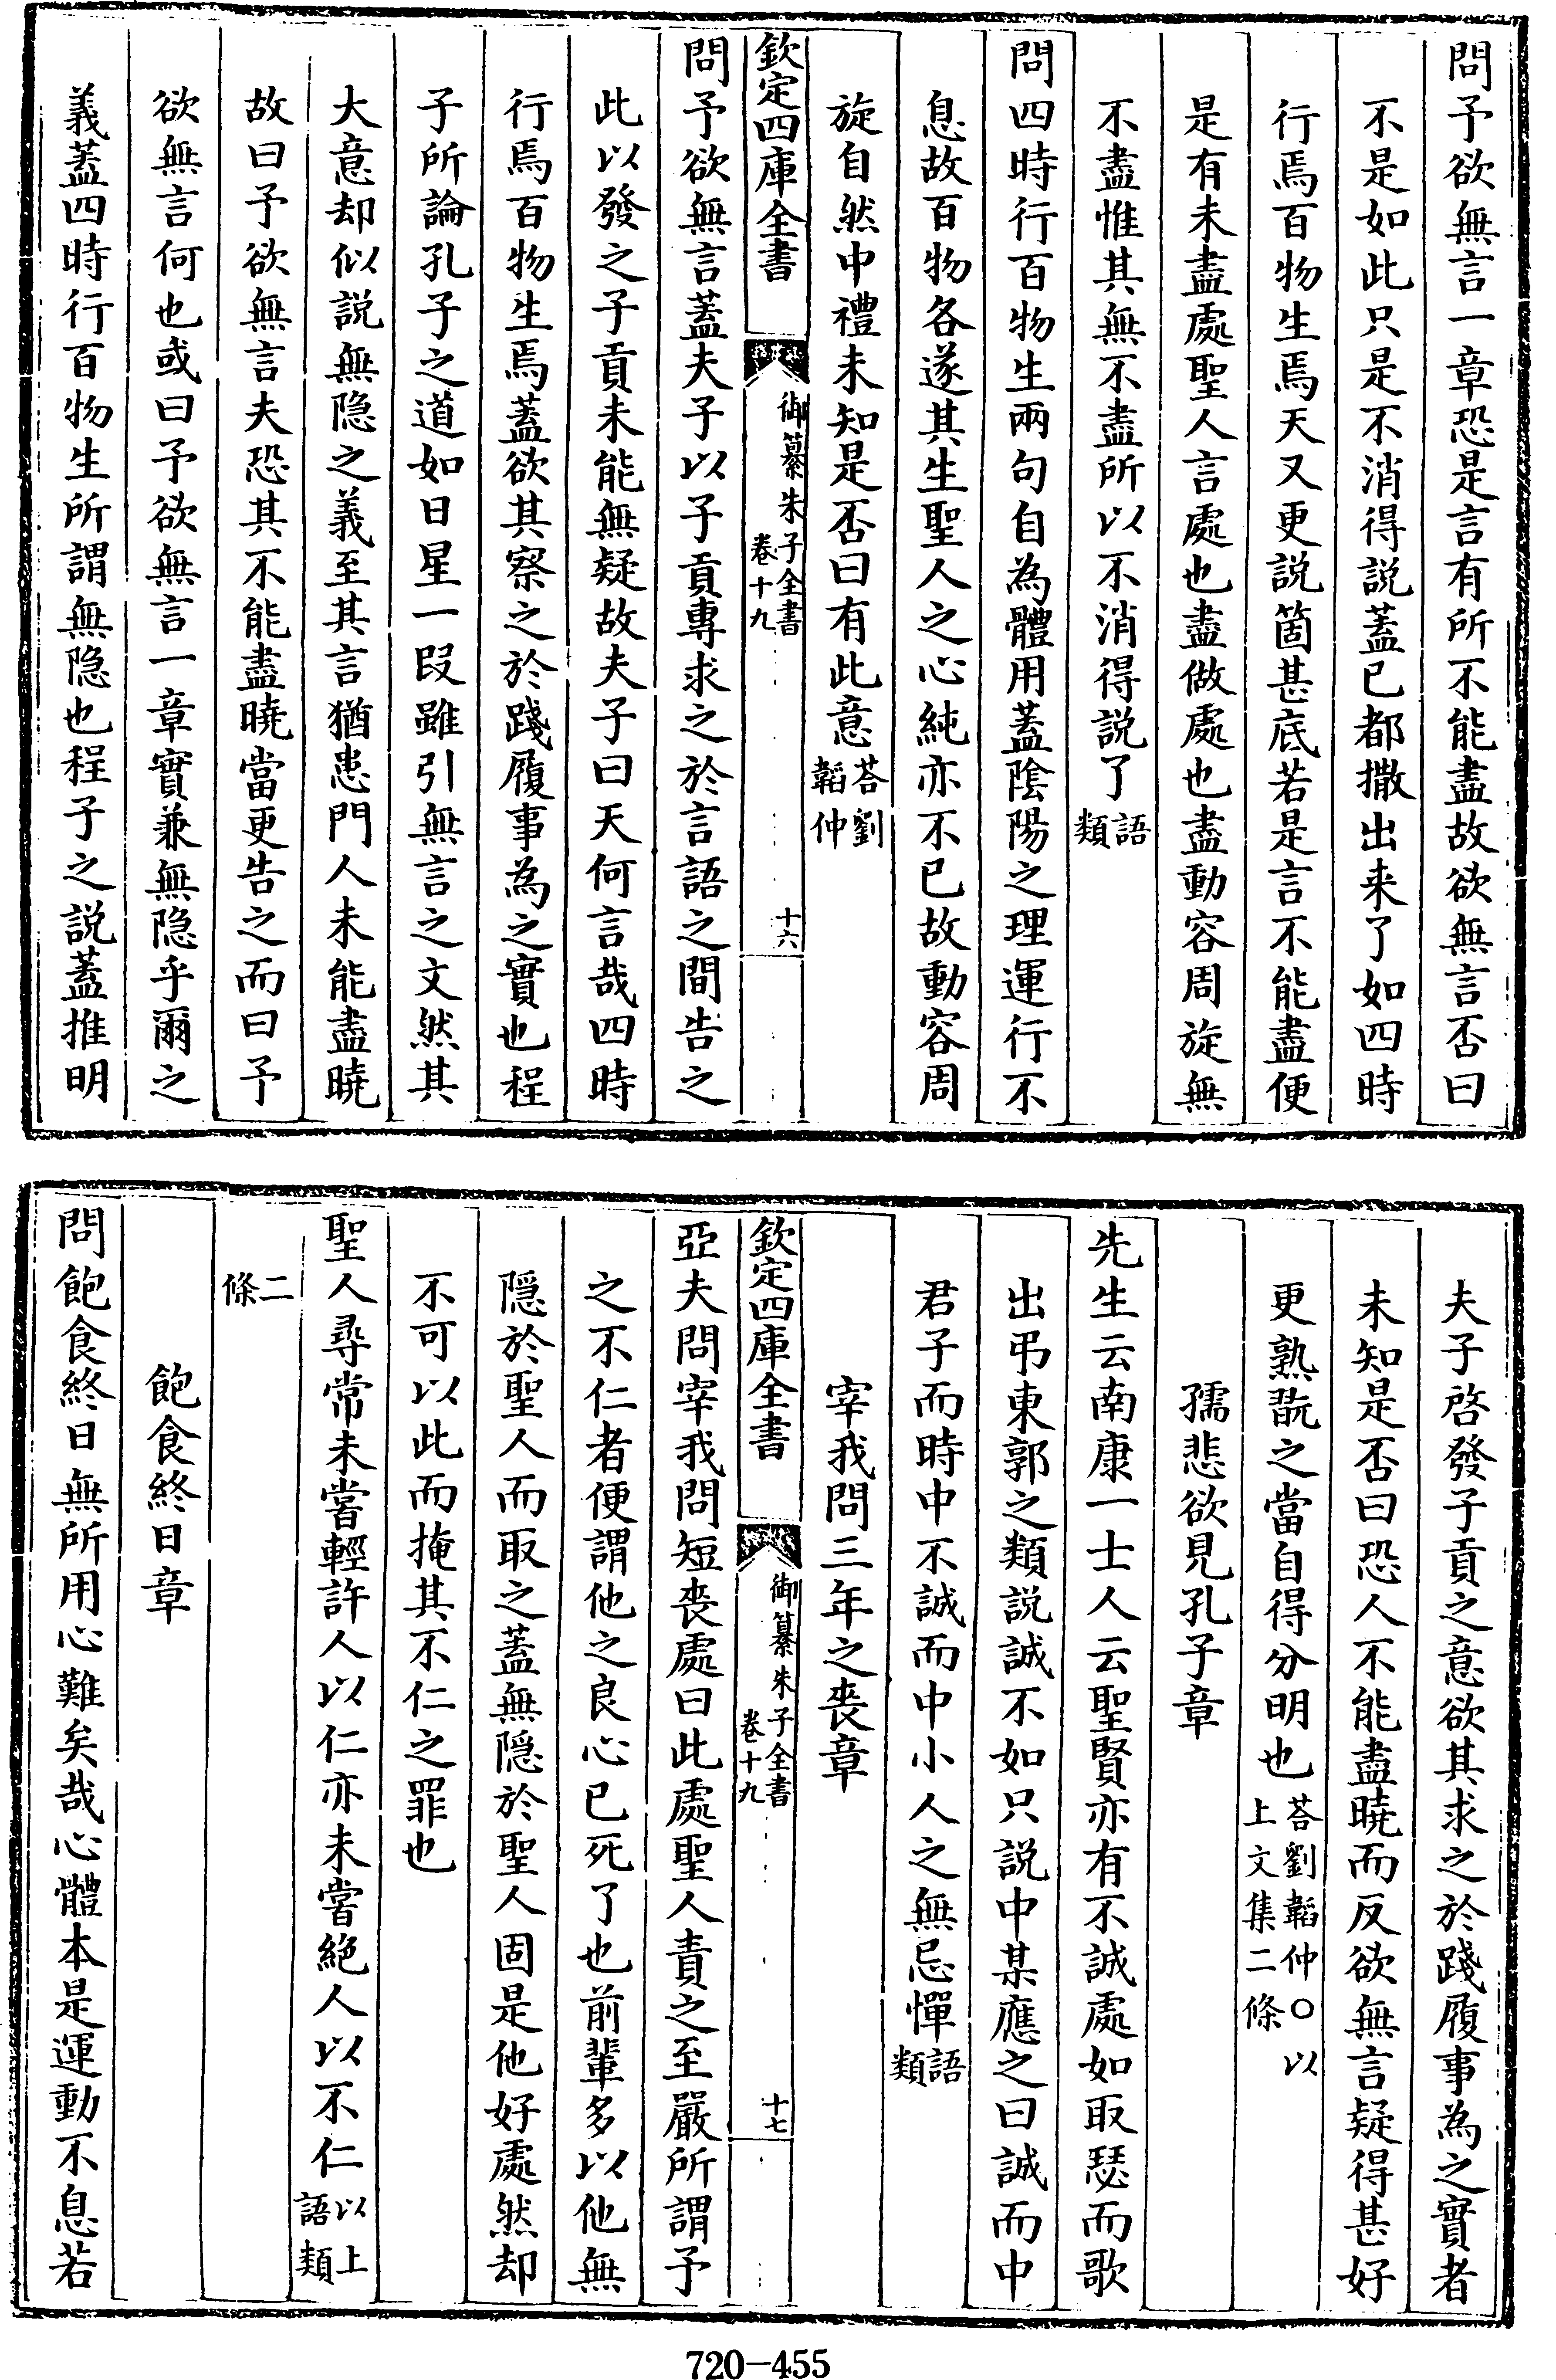 問予欲無言一章恐是言有所不能盡故欲無言否曰
不是如此只是不消得説蓋已都撒出来了如四時
行焉百物生焉天又更説箇甚底若是言不能盡便
是有未盡處聖人言處也盡做處也盡動容周旋無
不盡惟其無不盡所以不消得説了語類
問四時行百物生兩句自為體用蓋陰陽之理運行不
息故百物各遂其生聖人之心純亦不已故動容周
旋自然中禮未知是否曰有此意荅劉韜仲
欽定四庫全書
御纂朱子全書
卷十九
十六
問予欲無言蓋夫子以子貢專求之於言語之間告之
此以發之子貢未能無疑故夫子曰天何言哉四時
行焉百物生焉蓋欲其察之於踐履事為之實也程
子所論孔子之道如日星一段雖引無言之文然其
大意却似説無隐之義至其言猶患門人未能盡曉
故曰予欲無言夫恐其不能盡曉當更告之而曰予
欲無言何也或曰予欲無言一章實兼無隐乎爾之
義蓋四時行百物生所謂無隐也程子之説蓋推明
夫子啓發子貢之意欲其求之於踐履事為之實者
未知是否曰恐人不能盡曉而反欲無言疑得甚好
更熟翫之當自得分明也荅劉韜仲○以上文集二條
孺悲欲見孔子章
先生云南康一士人云聖賢亦有不誠處如取瑟而歌
出弔東郭之類説誠不如只説中某應之曰誠而中
君子而時中不誠而中小人之無忌憚語類
宰我問三年之喪章
欽定四庫全書
御纂朱子全書
卷十九
十七
亞夫問宰我問短喪處曰此處聖人責之至嚴所謂予
之不仁者便謂他之良心已死了也前輩多以他無
隱於聖人而取之蓋無隱於聖人固是他好處然却
不可以此而掩其不仁之罪也
聖人尋常未嘗輕許人以仁亦未嘗絕人以不仁以上語類
二條
飽食終日章
問飽食終日無所用心難矣哉心體本是運動不息若
720-455